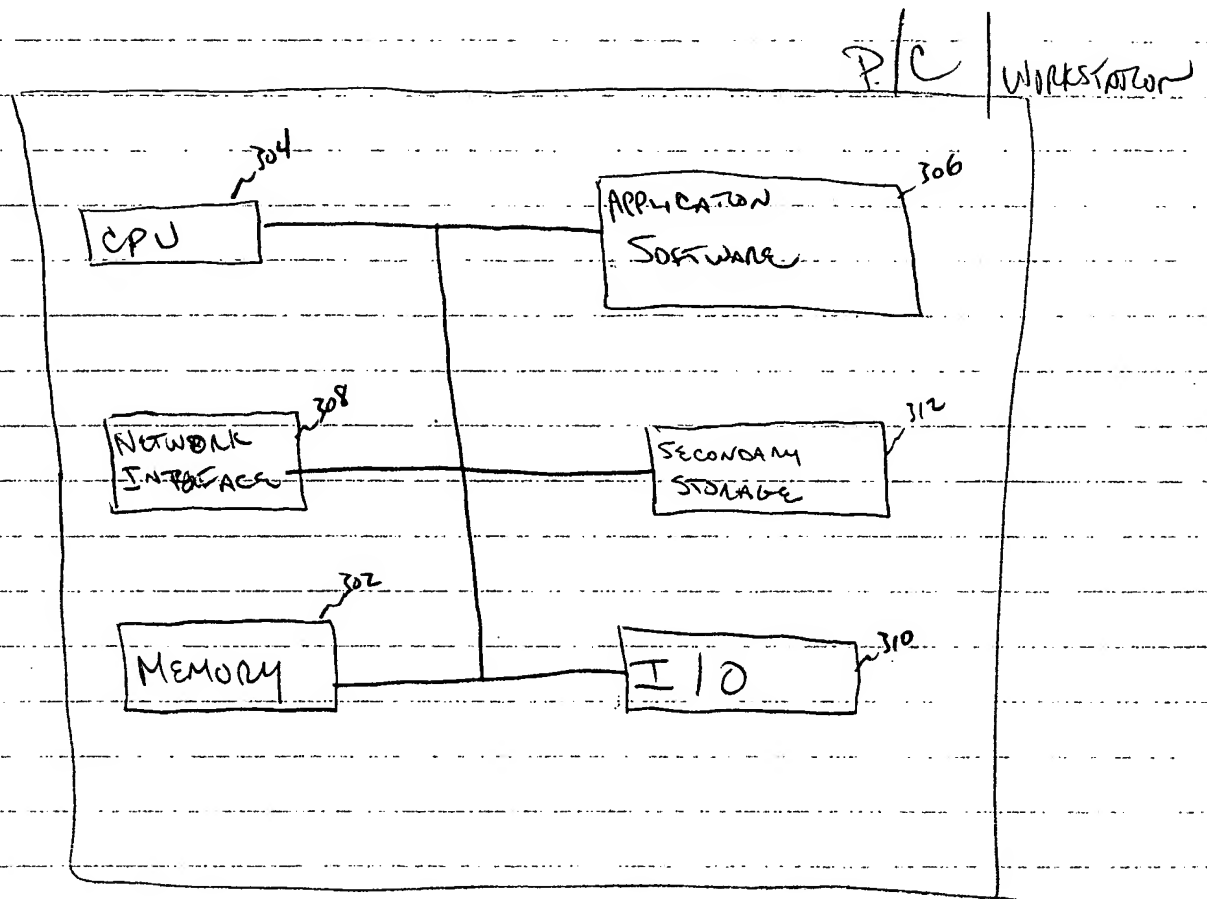 P.C / WORKSTATION
304
306
CPU
APPLICATION
SOFTWARE
308
312
NETWORK
INTERFACE
SECONDARY
STORAGE
302
310
MEMORY
I/O